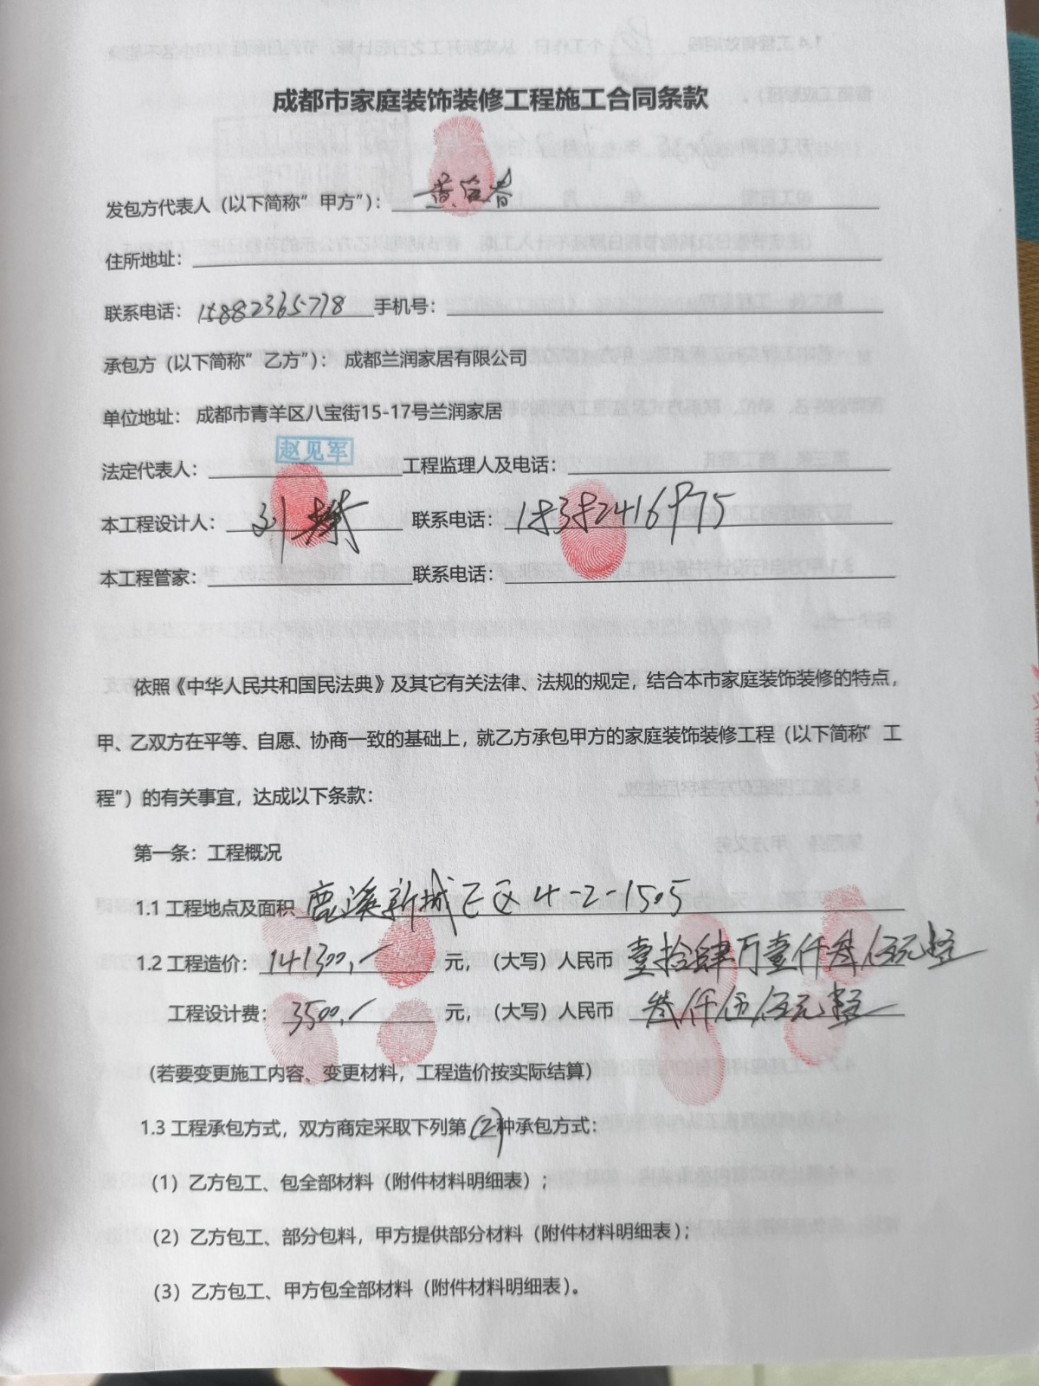 成都市家庭装饰装修工程施工合同条款
发包方代表人（以下简称”甲方”）：
住所地址：
联系电话：15882365778 手机号：
承包方（以下简称”乙方”）： 成都兰润家居有限公司
单位地址： 成都市青羊区八宝街15-17号兰润家居
法定代表人： 赵见军 工程监理人及电话：
本工程设计人：刘 联系电话：18382416975
本工程管家： 联系电话：
依照《中华人民共和国民法典》及其它有关法律、法规的规定，结合本市家庭装饰装修的特点，
甲、乙双方在平等、自愿、协商一致的基础上，就乙方承包甲方的家庭装饰装修工程（以下简称”工
程”）的有关事宜，达成以下条款：
第一条：工程概况
1.1 工程地点及面积 鹿溪新城E区4-2-1505
1.2 工程造价：141300,- 元，（大写）人民币 壹拾肆万壹仟叁佰元整
工程设计费：3500,- 元，（大写）人民币 叁仟伍佰元整
（若要变更施工内容、变更材料，工程造价按实际结算）
1.3 工程承包方式，双方商定采取下列第(2)种承包方式：
（1）乙方包工、包全部材料（附件材料明细表）；
（2）乙方包工、部分包料，甲方提供部分材料（附件材料明细表）；
（3）乙方包工、甲方包全部材料（附件材料明细表）。